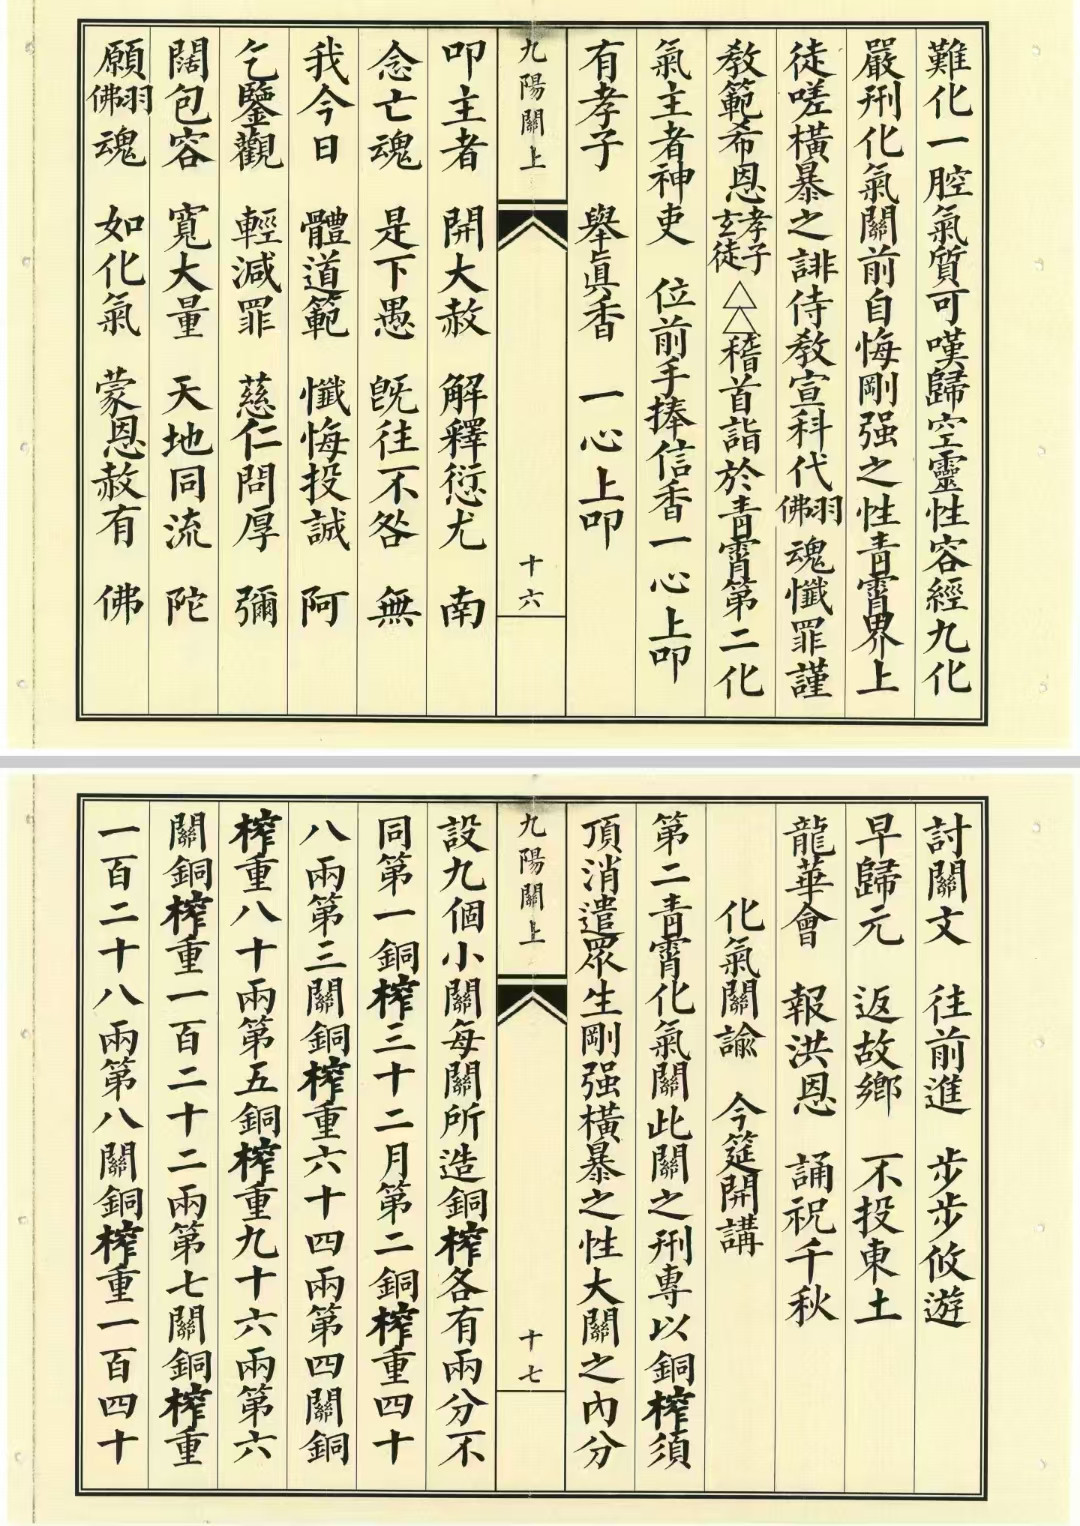 難化一腔氣質可嘆歸空靈性容經九化
嚴刑化氣關前自悔剛强之性青霄界上
徒嗟橫暴之誹侍教宣科代佛羽魂懺罪謹
教範希恩孝子玄徒△△稽首詣於青霄第二化
氣主者神吏 位前手捧信香一心上叩
有孝子 舉眞香 一心上叩
九陽關上 十六
叩主者 開大赦 解釋愆尤 南
念亡魂 是下愚 旣往不咎 無
我今日 體道範 懺悔投誠 阿
乞鑒觀 輕減罪 慈仁問厚 彌
闊包容 寬大量 天地同流 陀
願佛羽魂 如化氣 蒙恩赦有 佛
討關文 往前進 步步攸遊
早歸元 返故鄉 不投東土
龍華會 報洪恩 誦祝千秋
化氣關諭 今筵開講
第二青霄化氣關此關之刑專以銅榨須
頂消遣眾生剛强橫暴之性大關之內分
九陽關上 十七
設九個小關每關所造銅榨各有兩分不
同第一銅榨三十二月第二銅榨重四十
八兩第三關銅榨重六十四兩第四關銅
榨重八十兩第五銅榨重九十六兩第六
關銅榨重一百二十二兩第七關銅榨重
一百二十八兩第八關銅榨重一百四十